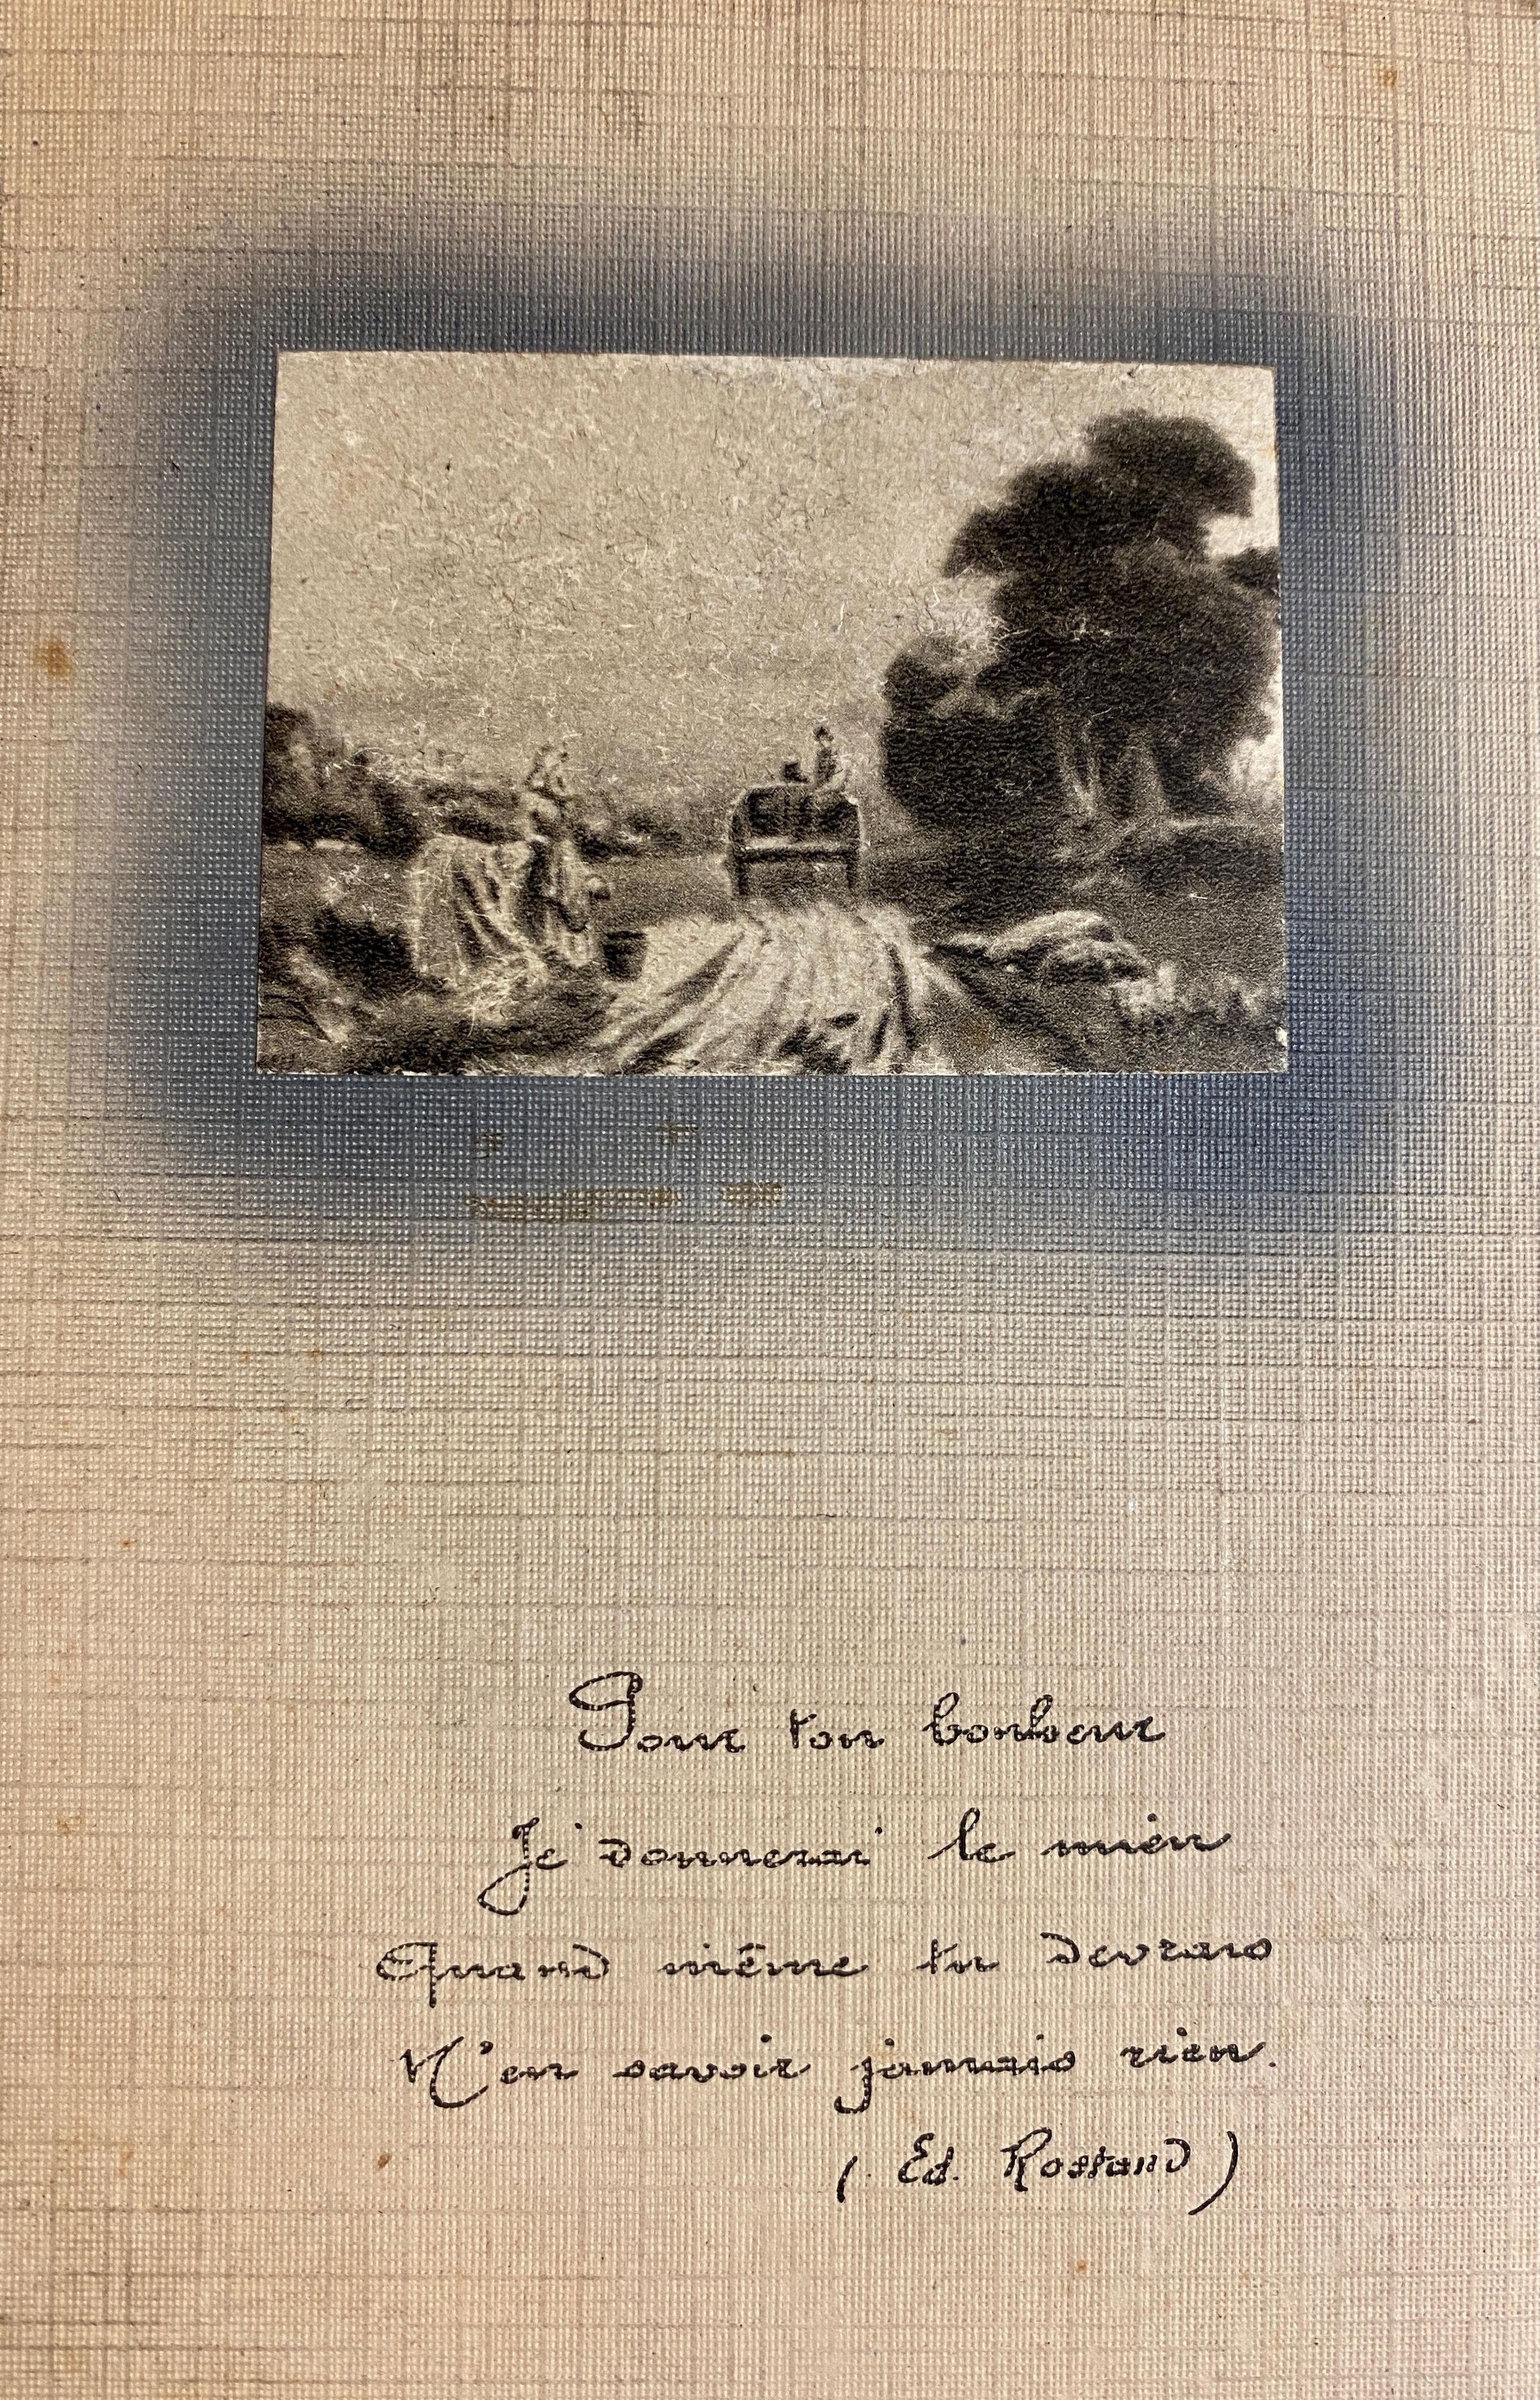 Pour ton bonheur
Je donnerai le mien
Quand même tu devrais
N'en savoir jamais rien.
( Ed. Rostand )